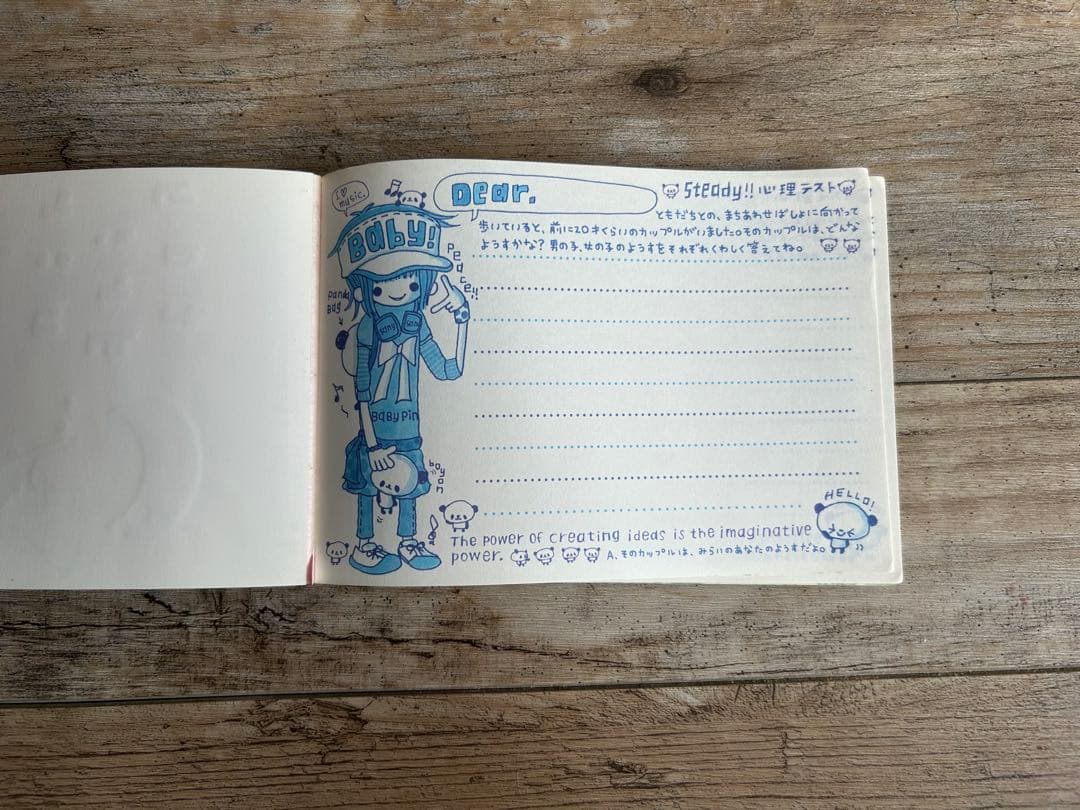 I♡
music.
Dear.
Steady!!心理テスト
ともだちとの、まちあわせばしょに向かって
歩いていると、前に20才くらいのカップルがいました。そのカップルは、どんな
ようすかな？男の子、女の子のようすをそれぞれくわしく答えてね。
BaBy!
Peace!!
Panda
Bag
BaBy Pin
boyon
HELLO!
The power of creating ideas is the imaginative
power.
A、そのカップルは、みらいのあなたのようすだよ。